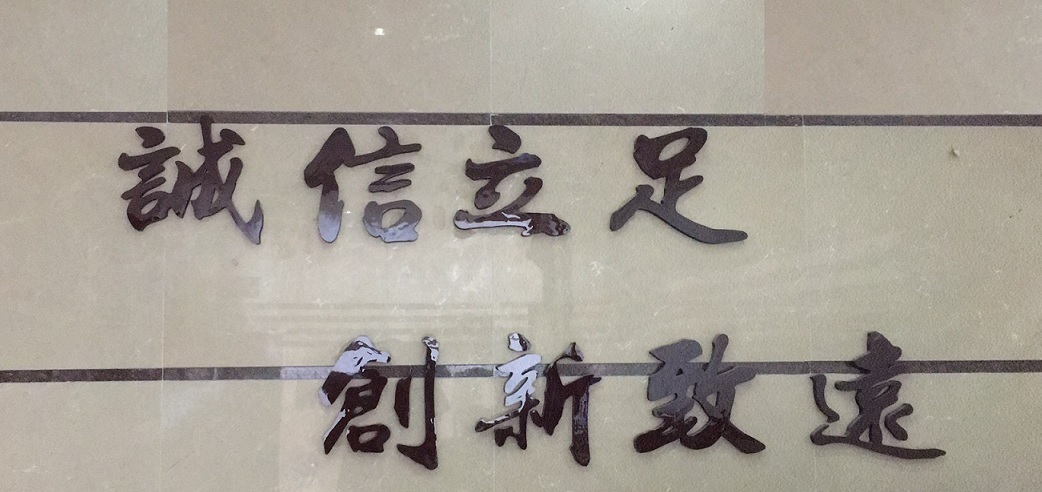 誠信立足
創新致遠